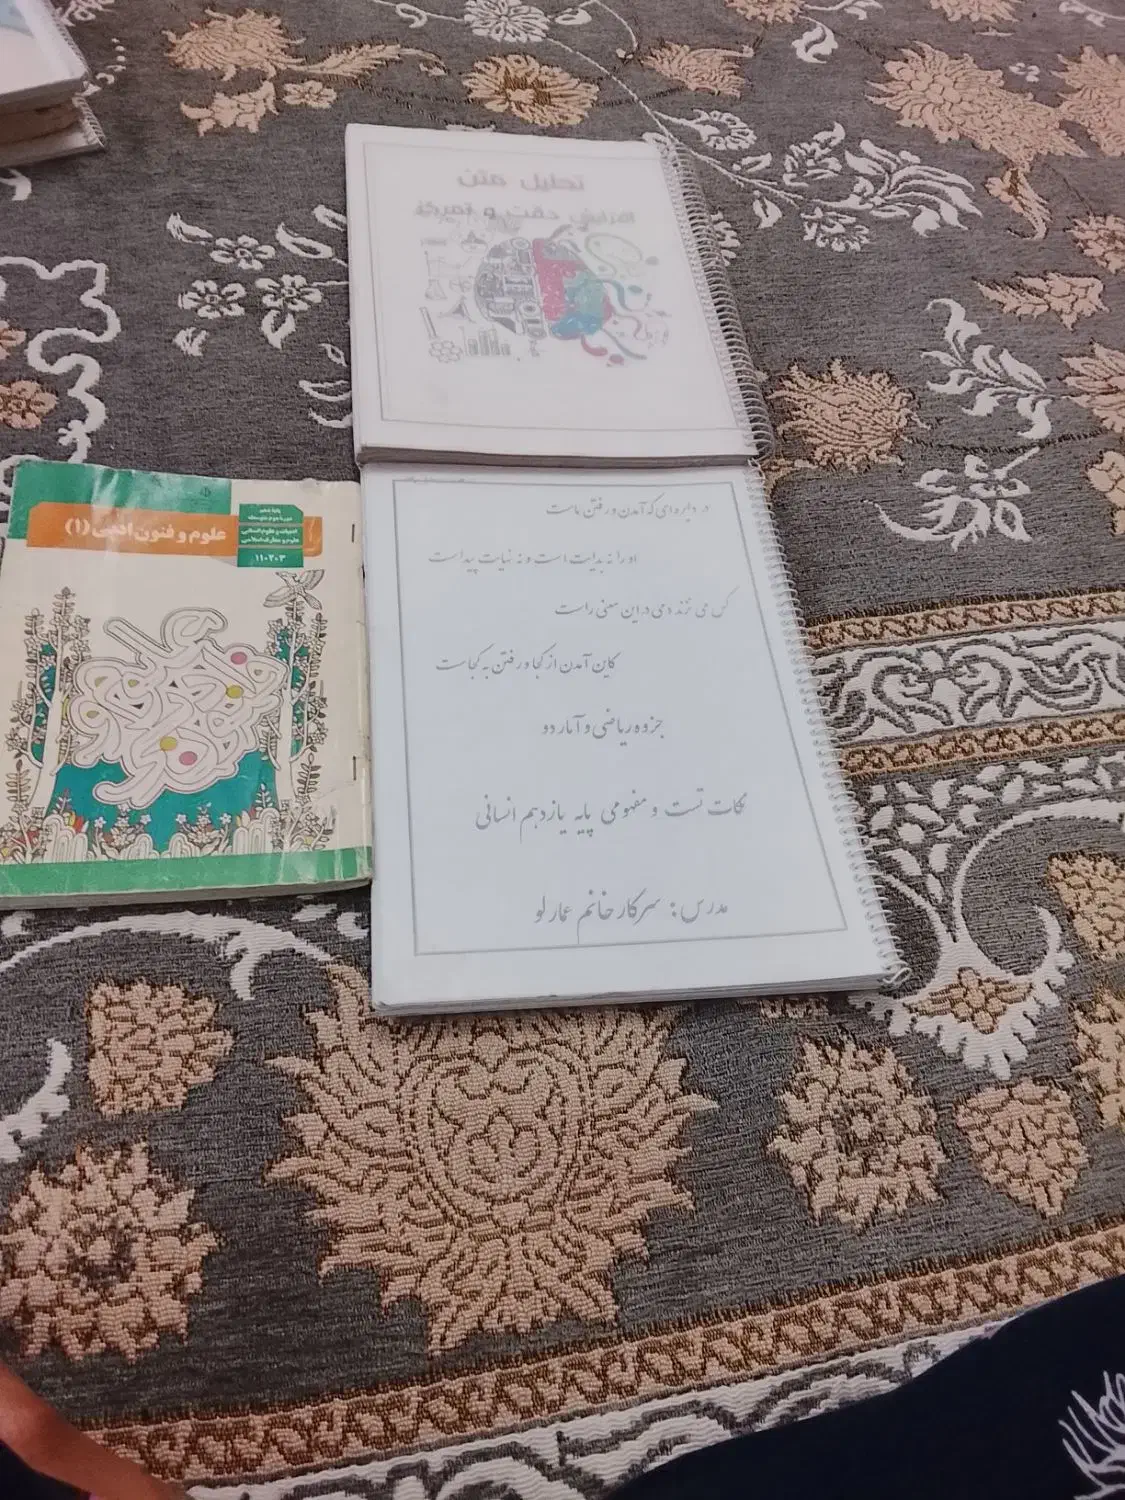 تحلیل متن
افزایش دقت و تمرکز
علوم و فنون ادبی (۱)
پایهٔ دهم
دورهٔ دوم متوسطه
ادبیات و علوم انسانی
علوم و معارف اسلامی
۱۱۰۲۰۳
در دایره‌ای که آمدن و رفتن ماست
او را نه بدایت است و نه نهایت پیداست
کس می نزند دمی در این معنی راست
کاین آمدن از کجا و رفتن به کجاست
جزوه ریاضی و آمار دو
نکات تست و مفهومی پایه یازدهم انسانی
مدرس: سرکار خانم عمارلو